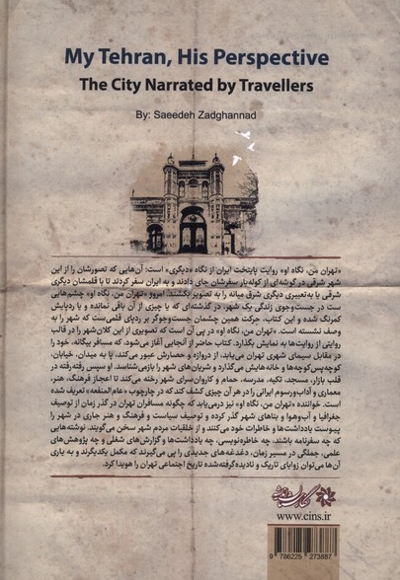 My Tehran, His Perspective
The City Narrated by Travellers
By: Saeedeh Zadghannad
«تهران من، نگاه او» روایت پایتخت ایران از نگاه «دیگری» است؛ آن‌هایی که تصورشان را از این
شهر شرقی در گوشه‌ای از کوله‌بار سفرشان جای دادند و به ایران سفر کردند تا با قلمشان دیگری
شرقی یا به‌تعبیری دیگری شرق میانه را به تصویر بکشند. امروز «تهران من، نگاه او» چشم‌هایی
ست در جست‌وجوی زندگی یک شهر، در گذشته‌ای که یا چیزی از آن باقی نمانده و یا ردپایش
کمرنگ شده و این کتاب، حرکت همین چشمان جست‌وجوگر بر ردپای قلمی‌ست که شهر را به
وصف نشسته است. «تهران من، نگاه او» در پی آن است که تصویری از این کلان‌شهر را در قالب
روایتی از روایت‌ها به نمایش بگذارد. کتاب حاضر از آنجایی آغاز می‌شود، که مسافر بیگانه، خود را
در مقابل سیمای شهری تهران می‌یابد، از دروازه و حصارش عبور می‌کند، پا به میدان، خیابان،
کوچه‌پس‌کوچه‌ها و خانه‌هایش می‌گذارد و شریان‌های شهر را بازمی‌شناسد. او سپس رفته‌رفته در
قلب بازار، مسجد، تکیه، مدرسه، حمام و کاروان‌سرای شهر رخنه می‌کند تا اعجاز فرهنگ، هنر،
معماری و آداب‌ورسوم ایرانی را در هر آن چیزی کشف کند که در چارچوب «عام المنفعه» تعریف شده
است. خواننده «تهران من، نگاه او» نیز درمی‌یابد که چگونه مسافران تهران در گذر زمان از توصیف
جغرافیا و آب‌وهوا و بناهای شهر گذر کرده و توصیف سیاست و فرهنگ و هنر جاری در شهر را
پیوست یادداشت‌ها و خاطرات خود می‌کنند و از خلقیات مردم شهر سخن می‌گویند. نوشته‌هایی
که چه سفرنامه باشند، چه خاطره‌نویسی، چه یادداشت‌ها و گزارش‌های شغلی و چه پژوهش‌های
علمی، جملگی در مسیر زمان، دغدغه‌های جدیدی را پی می‌گیرند که مکمل یکدیگرند و به یاری
آن‌ها می‌توان زوایای تاریک و نادیده‌گرفته‌شده تاریخ اجتماعی تهران را هویدا کرد.
www.cins.ir
9 786225 273887